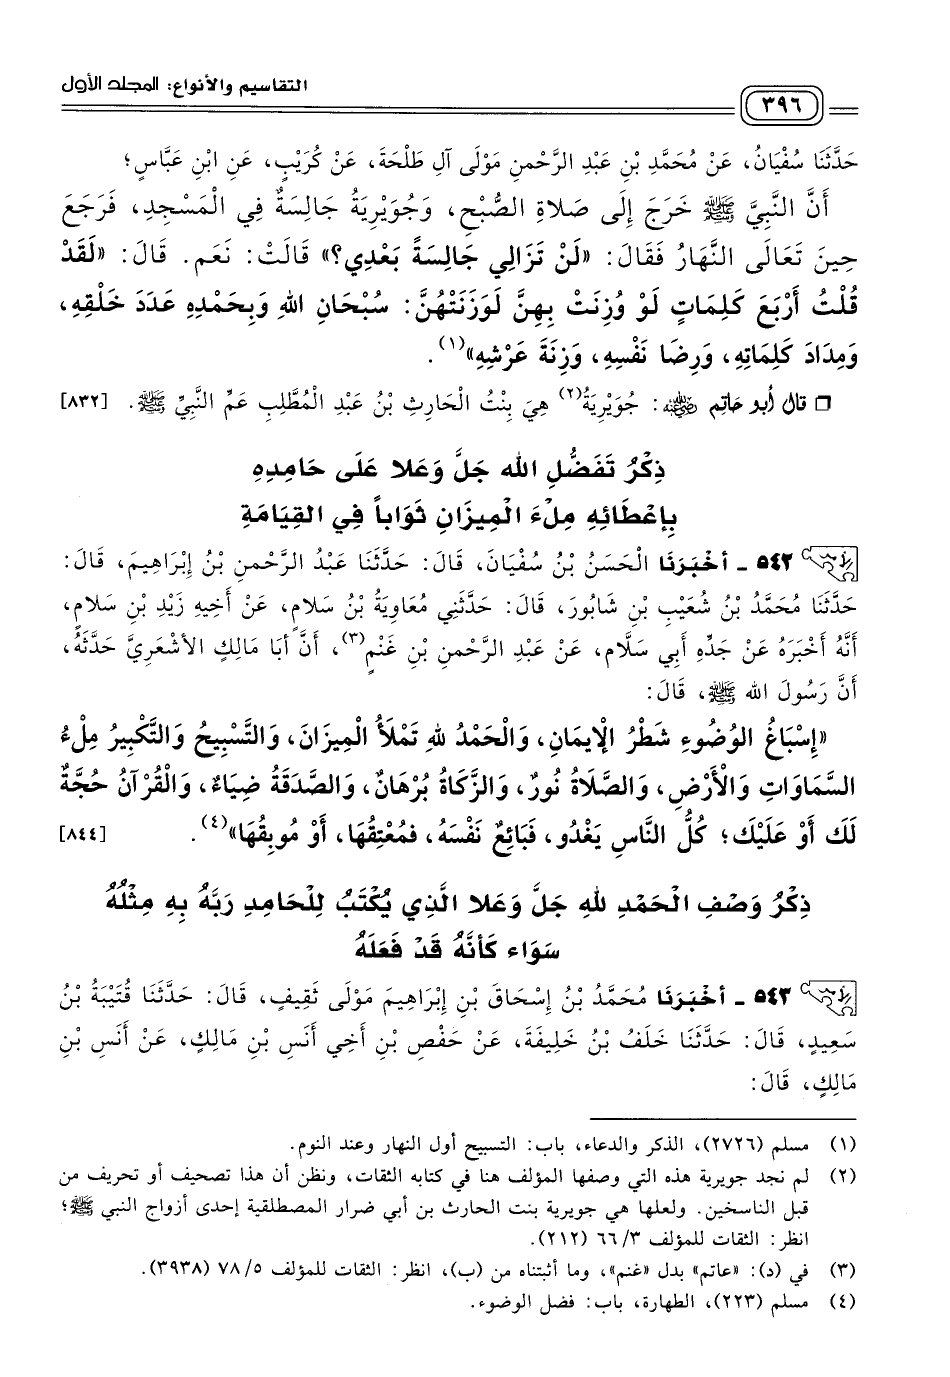 التقاسيم والأنواع: المجلد الأول
٣٩٦
حَدَّثَنَا سُفْيَانُ، عَنْ مُحَمَّدِ بْنِ عَبْدِ الرَّحْمنِ مَوْلَى آلِ طَلْحَةَ، عَنْ كُرَيْبٍ، عَنِ ابْنِ عَبَّاسٍ؛
أَنَّ النَّبِيَّ ﷺ خَرَجَ إِلَى صَلاةِ الصُّبْحِ، وَجُوَيْرِيَةُ جَالِسَةٌ فِي الْمَسْجِدِ، فَرَجَعَ
حِينَ تَعَالَى النَّهَارُ فَقَالَ: «لَنْ تَزَالِي جَالِسَةً بَعْدِي؟» قَالَتْ: نَعَم. قَالَ: «لَقَدْ
قُلْتُ أَرْبَعَ كَلِمَاتٍ لَوْ وُزِنَتْ بِهِنَّ لَوَزَنَتْهُنَّ: سُبْحَانَ اللهِ وَبِحَمْدِهِ عَدَدَ خَلْقِهِ،
وَمِدَادَ كَلِمَاتِهِ، وَرِضَا نَفْسِهِ، وَزِنَةَ عَرْشِهِ»(١).
❒ قال أبو حاتم رضي الله عنه: جُوَيْرِيَةُ(٢) هِيَ بِنْتُ الْحَارِثِ بْنُ عَبْدِ الْمُطَّلِبِ عَمِّ النَّبِيِّ ﷺ. [٨٣٢]
ذِكْرُ تَفَضُّلِ اللهِ جَلَّ وَعَلا عَلَى حَامِدِهِ
بِإِعْطَائِهِ مِلْءَ الْمِيزَانِ ثَوَاباً فِي القِيَامَةِ
٥٤٢ - أَخْبَرَنَا الْحَسَنُ بْنُ سُفْيَانَ، قَالَ: حَدَّثَنَا عَبْدُ الرَّحْمنِ بْنُ إِبْرَاهِيمَ، قَالَ:
حَدَّثَنَا مُحَمَّدُ بْنُ شُعَيْبِ بْنِ شَابُورَ، قَالَ: حَدَّثَنِي مُعَاوِيَةُ بْنُ سَلامٍ، عَنْ أَخِيهِ زَيْدِ بْنِ سَلامٍ،
أَنَّهُ أَخْبَرَهُ عَنْ جَدِّهِ أَبِي سَلَّام، عَنْ عَبْدِ الرَّحْمنِ بْنِ غَنْمٍ(٣)، أَنَّ أَبَا مَالِكٍ الأشْعَرِيَّ حَدَّثَهُ،
أَنَّ رَسُولَ الله ﷺ، قَالَ:
«إِسْبَاغُ الوُضُوءِ شَطْرُ الإِيمَانِ، وَالْحَمْدُ للهِ تَمْلَأُ الْمِيزَانَ، وَالتَّسْبِيحُ وَالتَّكْبِيرُ مِلْءُ
السَّمَاوَاتِ وَالْأَرْضِ، وَالصَّلَاةُ نُورٌ، وَالزَّكَاةُ بُرْهَانٌ، وَالصَّدَقَةُ ضِيَاءٌ، وَالْقُرْآنُ حُجَّةٌ
لَكَ أَوْ عَلَيْكَ؛ كُلُّ النَّاسِ يَغْدُو، فَبَائِعٌ نَفْسَهُ، فمُعْتِقُهَا، أَوْ مُوبِقُهَا»(٤). [٨٤٤]
ذِكْرُ وَصْفِ الْحَمْدِ للهِ جَلَّ وَعَلا الَّذِي يُكْتَبُ لِلْحَامِدِ رَبَّهُ بِهِ مِثْلُهُ
سَوَاء كَأَنَّهُ قَدْ فَعَلَهُ
٥٤٣ - أَخْبَرَنَا مُحَمَّدُ بْنُ إِسْحَاقَ بْنِ إِبْرَاهِيمَ مَوْلَى ثَقِيفٍ، قَالَ: حَدَّثَنَا قُتَيْبَةُ بْنُ
سَعِيدٍ، قَالَ: حَدَّثَنَا خَلَفُ بْنُ خَلِيفَةَ، عَنْ حَفْصِ بْنِ أَخِي أَنَسِ بْنِ مَالِكٍ، عَنْ أَنَسِ بْنِ
مَالِكٍ، قَالَ:
(١) مسلم (٢٧٢٦)، الذكر والدعاء، باب: التسبيح أول النهار وعند النوم.
(٢) لم نجد جويرية هذه التي وصفها المؤلف هنا في كتابه الثقات، ونظن أن هذا تصحيف أو تحريف من
قبل الناسخين. ولعلها هي جويرية بنت الحارث بن أبي ضرار المصطلقية إحدى أزواج النبي ﷺ؛
انظر: الثقات للمؤلف ٣/ ٦٦ (٢١٢).
(٣) في (د): «عاتم» بدل «غنم»، وما أثبتناه من (ب)، انظر: الثقات للمؤلف ٥/ ٧٨ (٣٩٣٨).
(٤) مسلم (٢٢٣)، الطهارة، باب: فضل الوضوء.